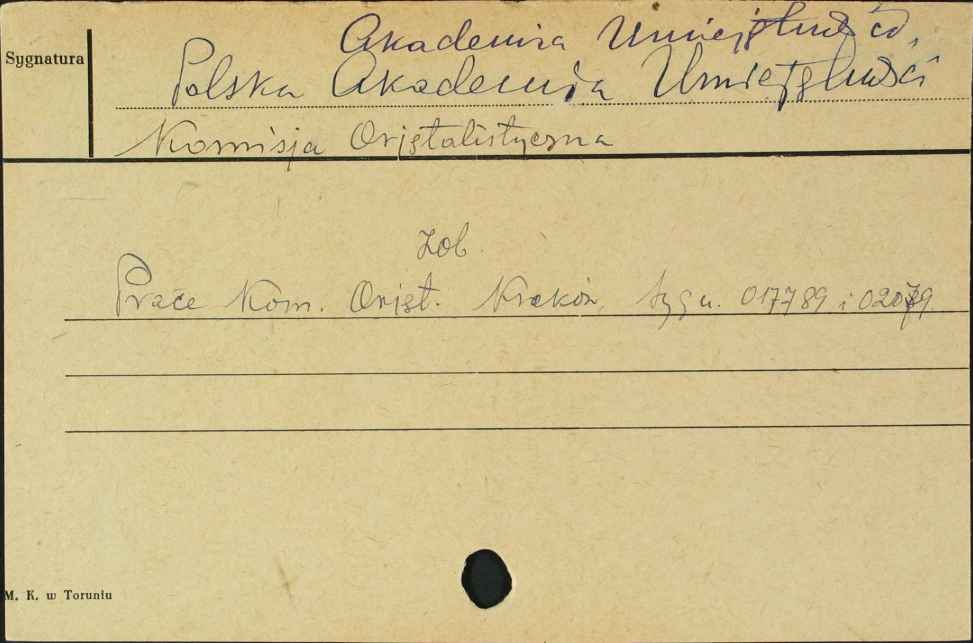 Akademia Umiejętności,
Sygnatura
Polska Akademia Umiejętności
Komisja Orjentalistyczna
Zob.
Prace Kom. Orjent. Kraków, sygn. 017789 i 02079
M. K. w Toruniu